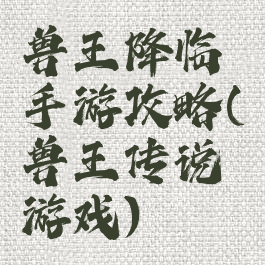 兽王降临
手游攻略(
兽王传说
游戏)